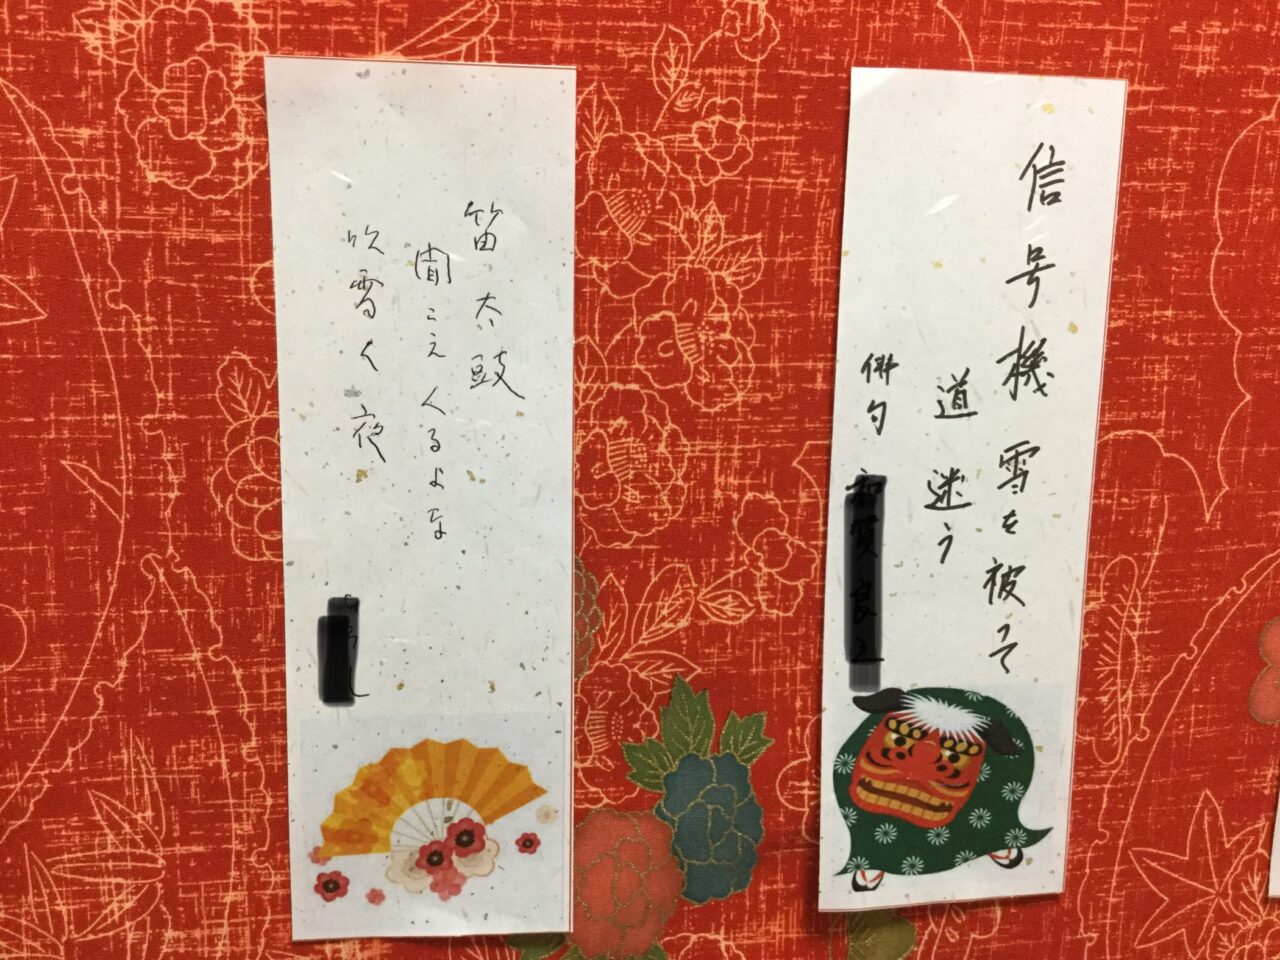 信号機雪を被て
道迷う
俳句
笛太鼓
聞こえくるよな
吹雪く夜